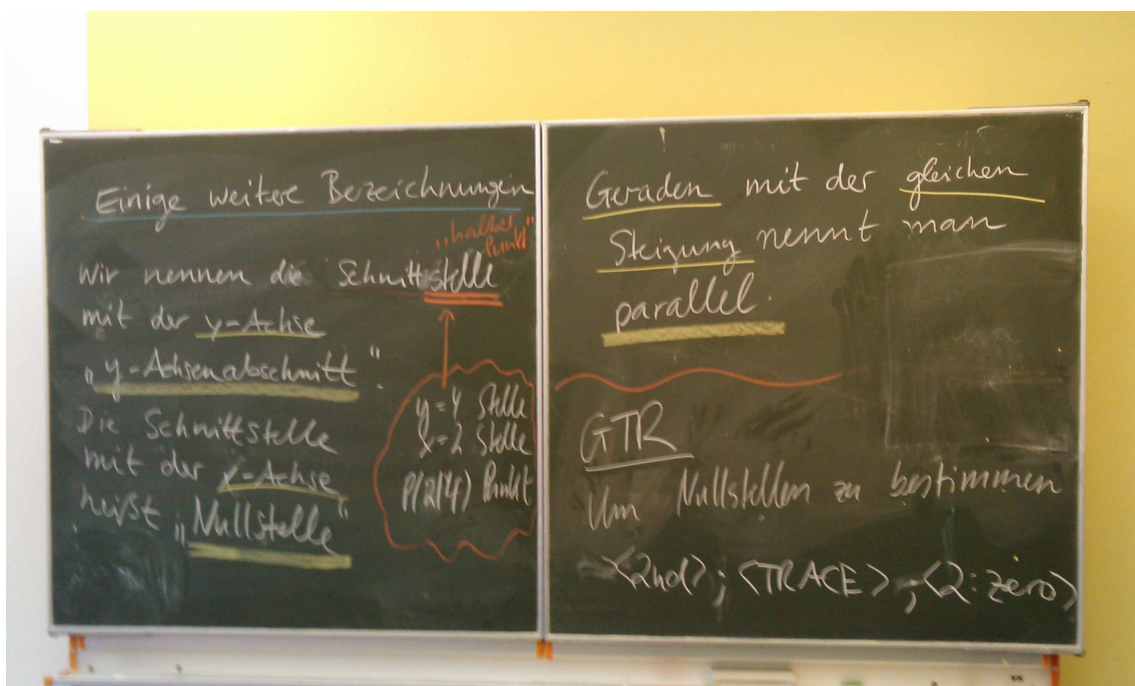 Einige weitere Bezeichnungen
„halber
Punkt"
Wir nennen die Schnittstelle
mit der y-Achse
„y-Achsenabschnitt".
Die Schnittstelle
mit der x-Achse
heißt „Nullstelle"
y=4 Stelle
x=2 Stelle
P(2|4) Punkt
Geraden mit der gleichen
Steigung nennt man
parallel.
GTR
Um Nullstellen zu bestimmen
<2nd>; <TRACE>; <2:zero>